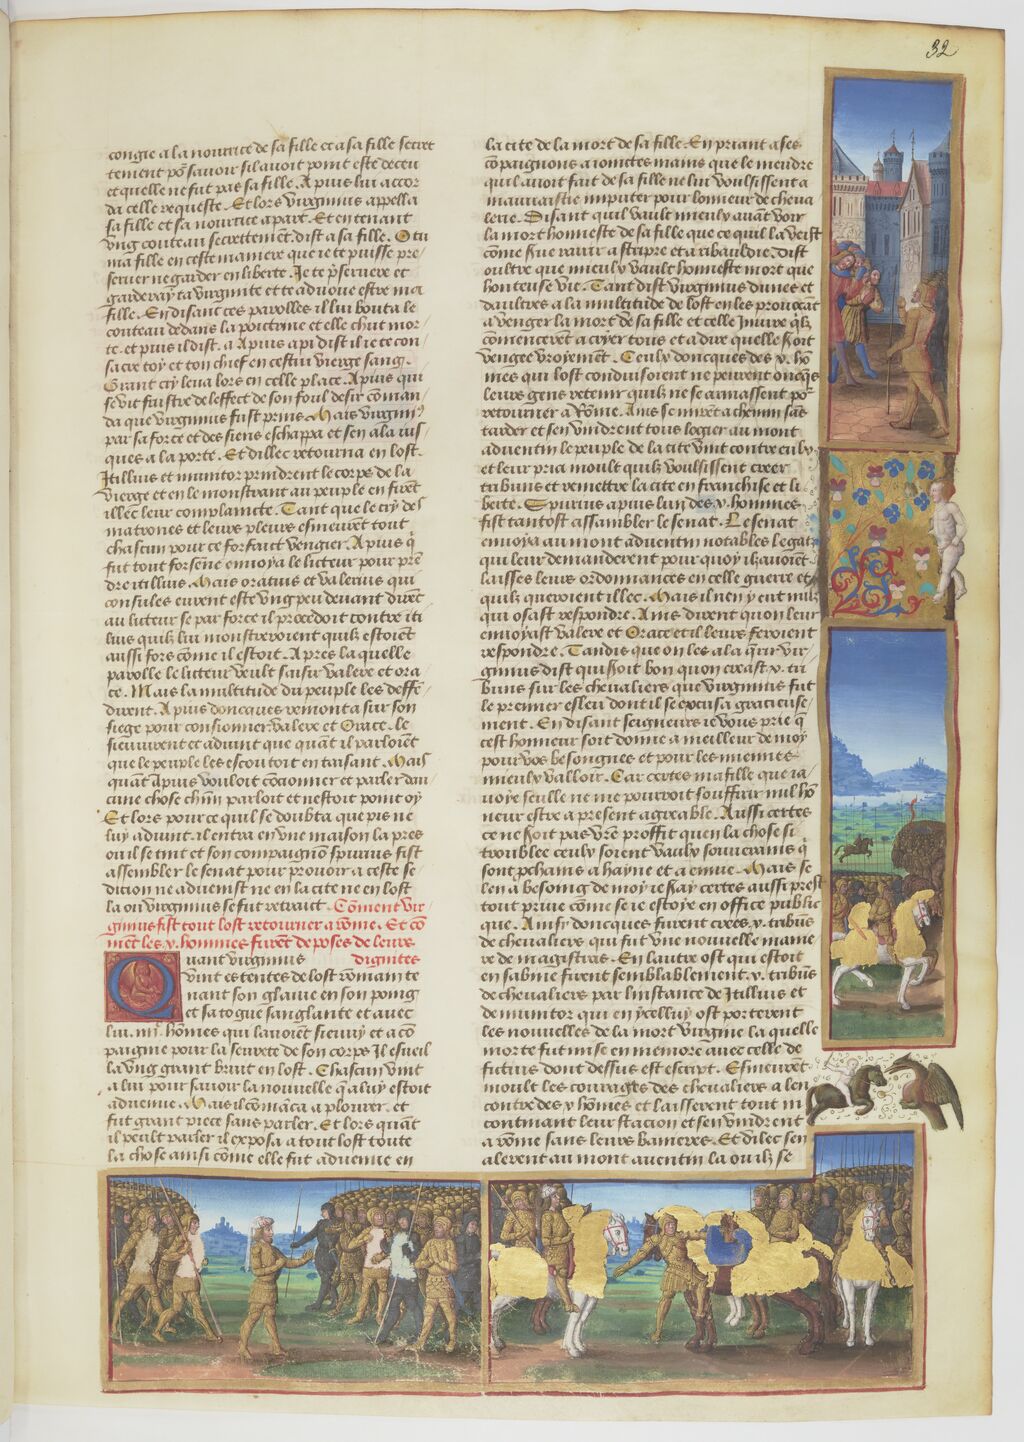 32
congie a la nourrice de sa fille et a sa fille secret
tement po᷑ savoir sil avoit point este deceu
et quelle ne fut pas sa fille. Apius lui accor
da celle requeste. Et lors virginius appella
sa fille et sa nourrice apart. Et en tenant
vng couteau secrettemēt. dist a sa fille. O tu
ma fille en ceste maniere que ie te puisse pre
server ne garder en liberte. Je te p̄serveré et
garderay ta virginite et te advoue estre ma
fille. En disant ces parolles il lui bouta le
couteau dedans la poictrine et elle chut mor
te. et puis il dist. a Apius api dist il ie te con
sacre toy et ton chief en cestui vierge sang.
Grant cry leva lors en celle place. Apius qui
se vit frustre de leffect de son foul desir cōman
da que virginius fust prins. Mais virginiꝰ
par sa force et des siens eschappa et sen ala ius
ques a la porte. Et dillec retourna en lost.
Itillius et munitor prindrent le corps de la
vierge et en le monstrant au peuple en firēt
illec leur complaincte. Tant que le cry des
matrones et leurs pleurs esmeurent tout
chascun pour ce forfait vengier. Apius q̄
fut tout forsene envoya le licteur pour prē
dre itillius. Mais oratius et valerius qui
consules eurent este vng peu devant dirēt
au licteur se par force il procedoit contre iti
lius quilz lui monstreroient quilz estoiēt
aussi fors cōme il estoit. Apres la quelle
parolle le licteur veult saisir valere et ora
ce. Mais la multitude du peuple les deffē
dirent. Apius doncques remonta sur son
siege pour consionner. valere et Orace. le
sieuvirent et advint que quāt il parloiēt
que le peuple les escoutoit en taisant. Mais
quāt Apius vouloit cōcionner et parler dau
cune chose chūn parloit et nestoit point oy
Et lors pour ce quil se doubta que pis ne
luy advint. il entra en vne maison la pres
ou il se tint et son compaignō spurius fist
assembler le senat pour prouoir a ceste se
dicion ne advenist ne en la cite ne en lost
la ou virginius se fut retrait. Cōment vir
ginius fist tout lost retourner a rōme. Et cō
mēt les .x. hommes furēt deposes de leurs
dignites
Quant virginius
vint es tentes de lost rōmain te
nant son glaive en son poing
et sa togue sanglante et avec
lui .iiijᶜ. hōmes qui lavoiēt sieuvy et acō
paigne pour la seurete de son corps Il esueil
la vng grant bruit en lost. Chascun vint
a lui pour savoir la nouvelle q̄ a luy estoit
advenue. Mais il cōmāca a plourer. et
fut grant piece sans parler. Et lors quāt
il peult parler il exposa a tout lost toute
la chose ainsi cōme elle fut advenue en
la cite de la mort de sa fille. En priant a ses
cōpaignons a ionctes mains que le meudre
quil avoit fait de sa fille ne lui voulsissent a
mauvaistie imputer pour lonneur de cheva
lerie. Disant quil vault mieulx avāt voir
la mort honneste de sa fille que ce quil la veist
cōme serve ravir a strupre et a ribauldie. dist
oultre que mieulx vault honneste mort que
honteuse vie. Tant dist virginius dunes et
daultres a la multitude de lost en les provocāt
a venger la mort de sa fille et celle Iniure q̄lz
cōmencerēt a cryer tous et a dire quelle seroit
vengee vrayement. Ceulx doncques des .x. hō
mes qui lost conduisoient ne peurent oncq̄s
leurs gens retenir quilz ne sarmassent po᷑
retourner a Rōme. Ains se mirēt a chemin sās
tarder et sen vindrent tous logier au mont
adventin le peuple de la cite vint contre eulx
et leur pria moult quilz voulsissent creer
tribuns et remettre la cite en franchise et li
berte. Spurius apius lun des .x. hommes
fist tantost assambler le senat. Le senat
envoya au mont adventin notables legatz
qui leur demanderent pour quoy ilz avoiēt
laisses leurs ordonnances en celle guerre et
quilz queroient illec. Mais il nen y eut nulz
qui osast respondre. Ains dirent quon leur
envoyast valere et Orace et il leurs feroient
respondre. Tandis que on les ala q̄rir vir
ginius dist quil soit bon quon creast .x. tri
buns sur les chevaliers que virginius fut
le premier esleu dont il se excusa gracieuse
ment. En disant seigneurs ie vous prie q̄
cest honneur soit donne a meilleur de moy
pour vos besongnes et pour les miennes
mieulx valloir. Car certes ma fille que ia
voye seulle ne me pourroit souffrir nul hō
neur estre a present agreable. Aussi certes
ce ne soit pas vrē proffit quen la chose si
troublee ceulx soient vaulx souverains q̄
sont pchains a hayne et a envie. Mais se
len a besoing de moy ie say certes aussi prest
tout prive cōme se ie estoye en office public
que. Ainsy doncques furent crees .x. tribūs
de chevaliers qui fut vne nouvelle manie
re de magistras. En lautre ost qui estoit
en sabine firent semblablement .x. tribūs
de chevaliers par linstance de Itillius et
de munitor qui en ycelluy ost porterent
les nouvelles de la mort virgine la quelle
morte fut mise en memore avec celle de
sicius dont dessus est escript. Esmeurēt
moult les courages des chevaliers a len
contre des .x. hōmes et laisserent tout in
continant leur stacion et sen vindrent
a rōme sans leurs banieres. Et dilec sen
alerent au mont aventin la ou ilz se